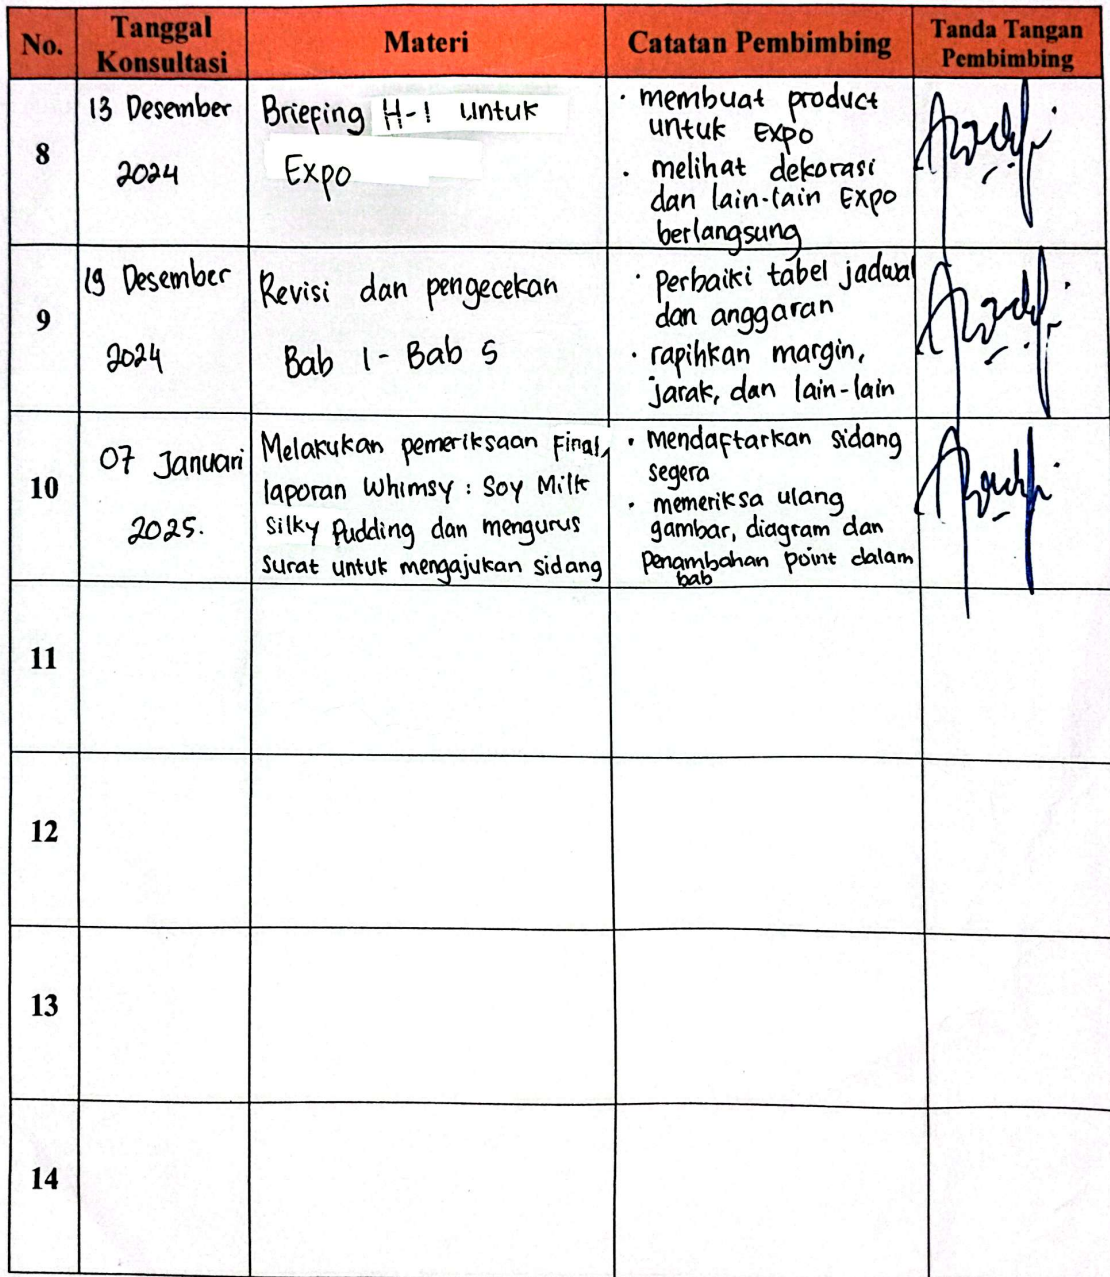 No.
Tanggal
Konsultasi
Materi
Catatan Pembimbing
Tanda Tangan
Pembimbing
8
13 Desember
2024
Briefing H-1 untuk
Expo
· membuat product
untuk Expo
· melihat dekorasi
dan lain-lain Expo
berlangsung
9
19 Desember
2024
Revisi dan pengecekan
Bab 1 - Bab 5
· Perbaiki tabel jadwal
dan anggaran
· rapihkan margin,
jarak, dan lain-lain
10
07 Januari
2025.
Melakukan pemeriksaan Final,
laporan Whimsy : Soy Milk
Silky Pudding dan mengurus
Surat untuk mengajukan sidang
· mendaftarkan sidang
segera
· memeriksa ulang
gambar, diagram dan
Penambahan point dalam
bab
11
12
13
14